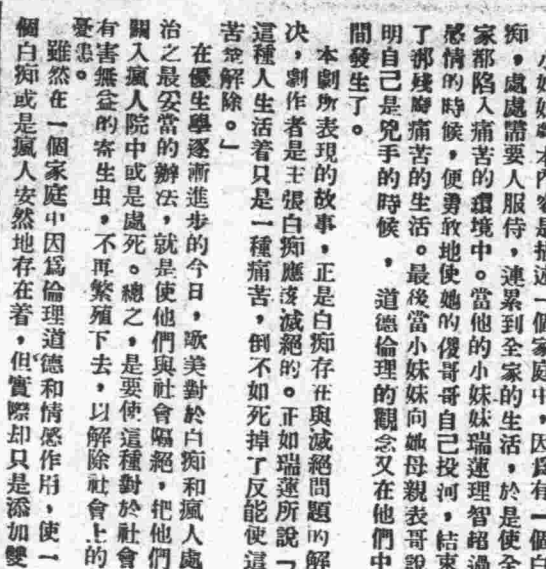 小妹妹劇本內容是描述一個家庭中，因爲有一個白
痴，處處需要人服侍，連累到全家的生活，於是使全
家都陷入痛苦的環境中。當他的小妹妹瑞蓮理智超過
感情的時候，便勇敢地使她的傻哥哥自己投河，結束
了那殘廢痛苦的生活。最後當小妹妹向她母親表哥說
明自己是兇手的時候，道德倫理的觀念又在他們中
間發生了。
本劇所表現的故事，正是白痴存在與滅絕問題的解
决，劇作者是主張白痴應該滅絕的。正如瑞蓮所說「
這種人生活着只是一種痛苦，倒不如死掉了反能使這
苦  解除。」
在優生學逐漸進步的今日，歐美對於白痴和瘋人處
治之最妥當的辦法，就是使他們與社會隔絕，把他們
關入瘋人院中或是處死。總之，是要使這種對於社會
有害無益的寄生虫，不再繁殖下去，以解除社會上的
憂患。
雖然在一個家庭中因爲倫理道德和情感作用，使一
個白痴或是瘋人安然地存在着，但實際却只是添加雙